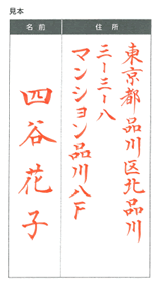 見本
名前
住所
東京都 品川区北品川
三ー三ー八
マンション品川八F
四谷花子